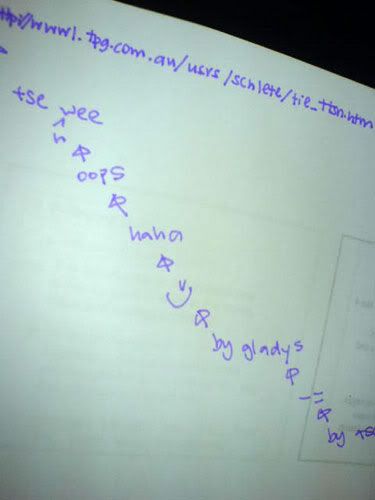 http://www1.tpg.com.au/usrs/schlete/tie_ttsn.htm
tse wee
n
oops
haha
by gladys
-=
by tse